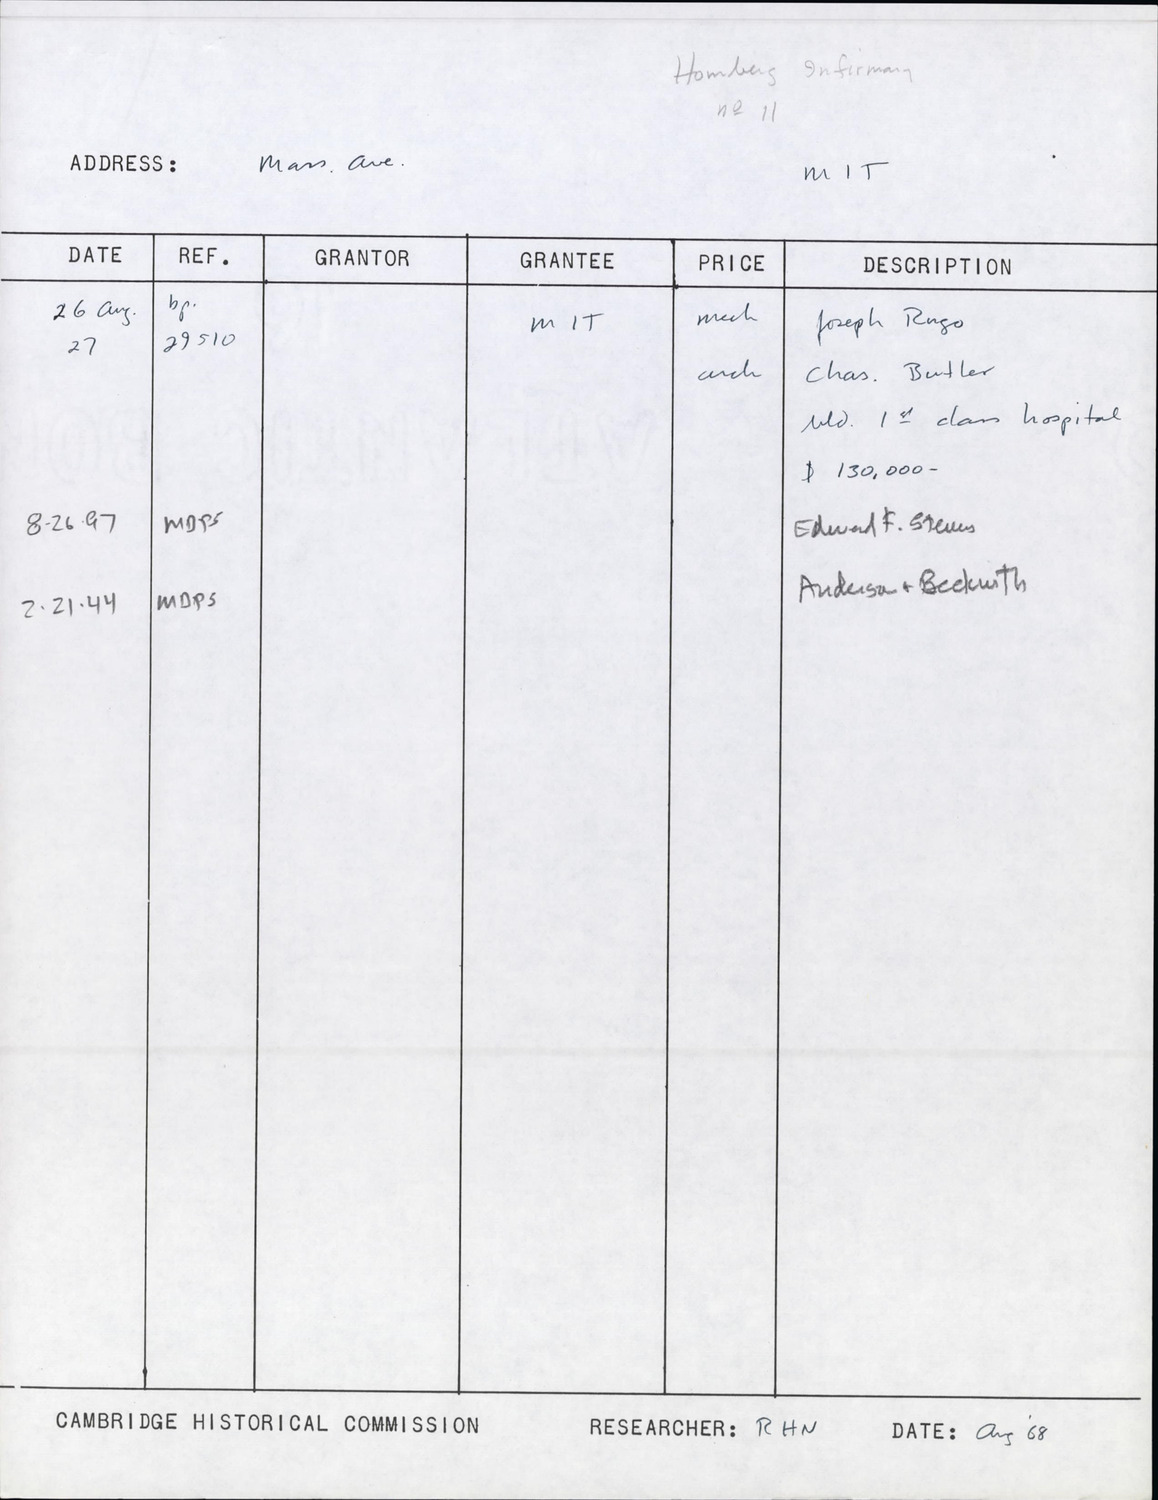 Homberg Infirmary
no 11
ADDRESS: Mass. Ave.
MIT
DATE REF. GRANTOR GRANTEE PRICE DESCRIPTION
26 Aug. bp. MIT mech Joseph Rugo
27 29510
arch Chas. Butler
bld. 1st class hospital
$ 130,000-
8-26-97 MDPS Edward F. Stevens
2-21-44 MDPS Anderson + Beckwith
CAMBRIDGE HISTORICAL COMMISSION RESEARCHER: RHN DATE: Aug '68